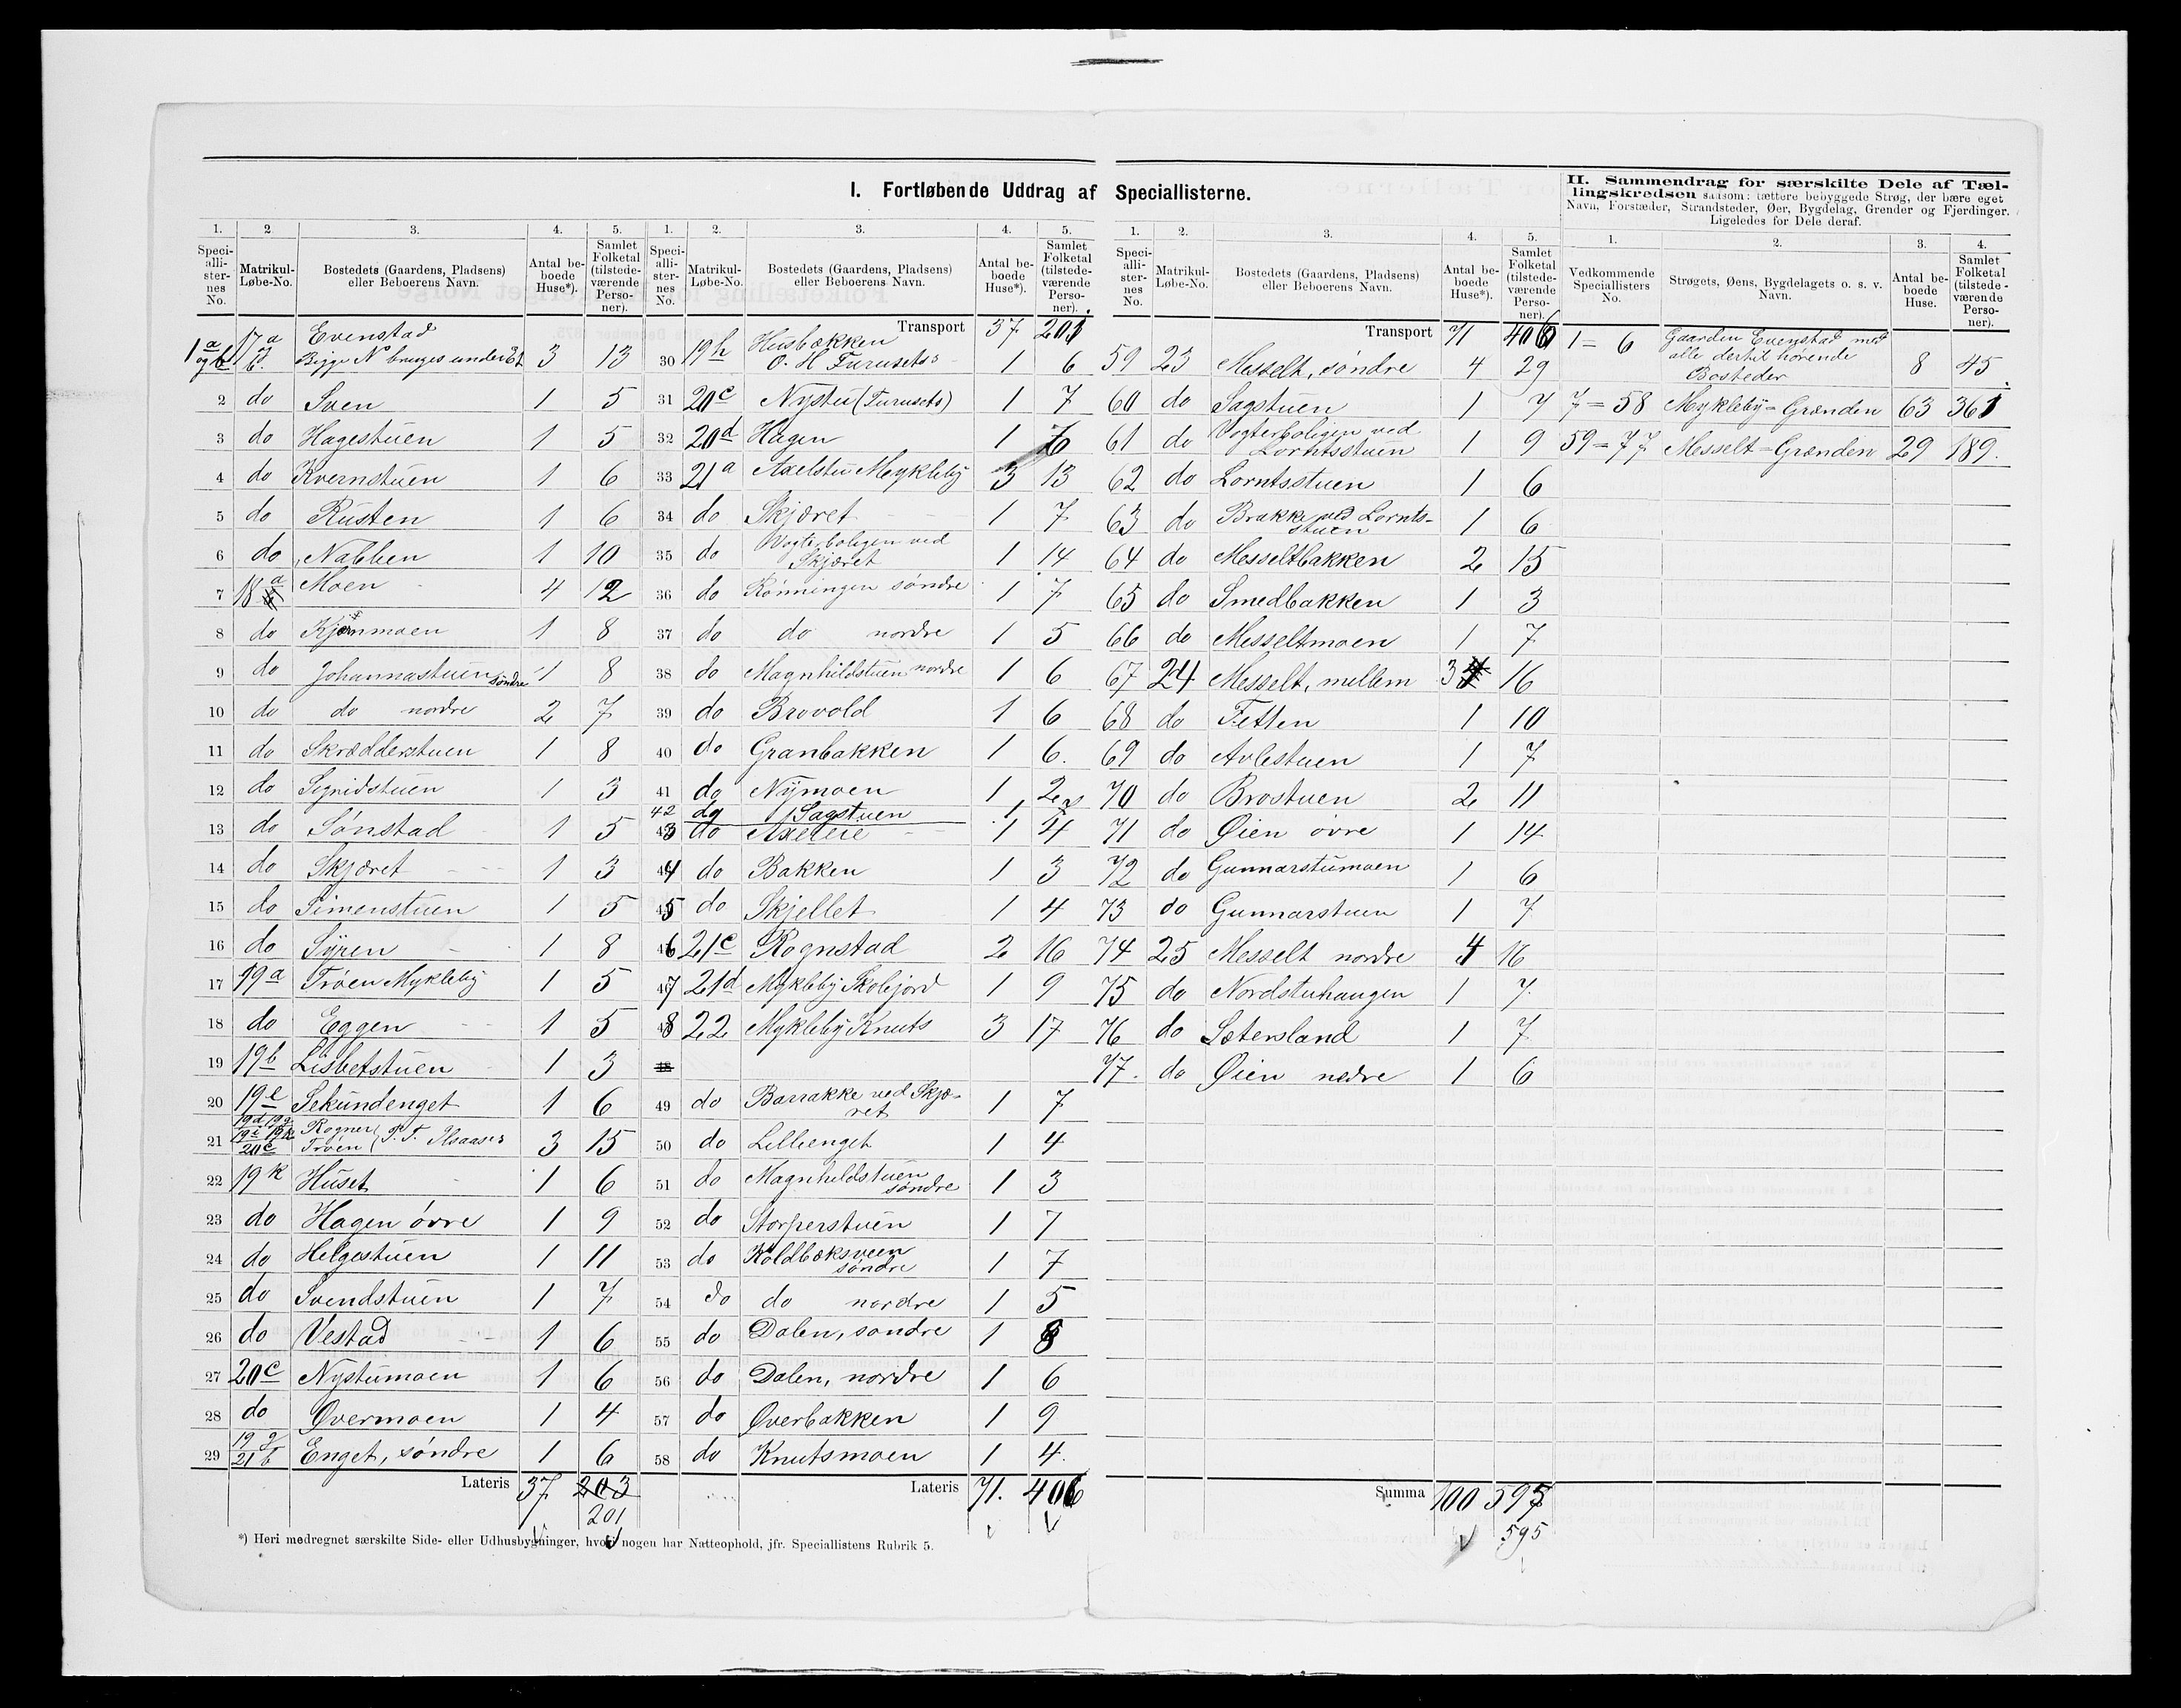 I. Fortløbende Uddrag af Speciallisterne.
1. 2 3. 4. 5.
Speciallisternes No. Matrikul-Løbe-No. Bostedets (Gaardens, Pladsens) eller Beboerens Navn. Antal beboede Huse*). Samlet Folketal (tilstedeværende Personer).
1 a og b 17 a b. Evenstad Begge No bruges under Et 3 13
2 do Sven 1 5
3 do Hagestuen 1 5
4 do Kvernstuen 1 6
5 do Rusten 1 6
6 do Nabben 1 10
7 18 a Moen 4 12
8 do Kjernmoen 1 8
9 do Johannastuen søndre 1 8
10 do do nordre 2 7
11 do Skrædderstuen 1 8
12 do Signidstuen 1 3
13 do Sønstad 1 5
14 do Skjæret 1 3
15 do Simenstuen 1 5
16 do Syren 1 8
17 19 a Trøen Mykleby 1 5
18 do Eggen 1 5
19 19 b Lisbetstuen 1 3
20 19 e Sekundenget 1 6
21 19 d 19 g 19 i 20 e Rognen Trøen P. T. 3 15
22 19 k Huset 1 6
23 do Hagen øvre 1 9
24 do Helgestuen 1 11
25 do Svendstuen 1 7
26 do Vestad 1 6
27 20 c Nystumoen 1 6
28 do Øvermoen 1 4
29 19 g 21 b Enget, søndre 1 6
Lateris 37 203
201
1. 2. 3. 4. 5.
Speciallisternes No. Matrikul-Løbe-No. Bostedets (Gaardens, Pladsens) eller Beboerens Navn. Antal beboede Huse*). Samlet Folketal (tilstedeværende Personer).
Transport 37 201
30 19 h Husbakken O. H. Furusets 1 6
31 20 c Nystu (Furusets) 1 7
32 20 d Hagen 1 7
33 21 a Axelstu Mykleby 3 13
34 do Skjæret 1 7
35 do Vogterboligen ved Skjæret 1 14
36 do Rønningen søndre 1 7
37 do do nordre 1 5
38 do Magnhildstuen nordre 1 6
39 do Brovold 1 6
40 do Granbakken 1 6.
41 do Nymoen 1 2
42 do Sagstuen 1
43 do Axeleie 1 4
44 do Bakken 1 3
45 do Skjellet 1 4
46 21 c Rognstad 2 16
47 21 d Mykleby Skolejord 1 9
48 22 Mykleby Knuts 3 17
48
49 do Barrakke ved Skjæret 1 7
50 do Lillienget 1 4
51 do Magnhildstuen søndre 1 3
52 do Storperstuen 1 7
53 do Koldbæksveen søndre 1 7
54 do do nordre 1 5
55 do Dalen, søndre 1 8
56 do Dalen, nordre 1 6
57 do Øverbakken 1 9
58 do Knutsmoen 1 4
Lateris 71. 406
1. 2. 3. 4. 5.
Speciallisternes No. Matrikul-Løbe-No. Bostedets (Gaardens, Pladsens) eller Beboerens Navn. Antal beboede Huse*). Samlet Folketal (tilstedeværende Personer).
Transport 71 406
59 23 Messelt, søndre 4 29
60 do Sagstuen 1 7
61 do Vogterboligen ved Lorntsstuen 1 9
62 do Lorntsstuen 1 6
63 do Brakke ved Lorntsstuen 1 6
64 do Messeltbakken 2 15
65 do Smedbakken 1 3
66 do Messeltmoen 1 7
67 24 Messelt, mellem 3 16
68 do Fetten 1 10
69 do Avlestuen 1 7
70 do Brostuen 2 11
71 do Øien øvre 1 14
72 do Gunnarstumoen 1 6
73 do Gunnarstuen 1 7
74 25 Messelt nordre 4 16
75 do Nordstuhaugen 1 7
76 do Sætersland 1 7
77. do Øien nedre 1 6
Summa 100 595
595
II. Sammendrag for særskilte Dele af Tællingskredsen saasom: tættere bebyggede Strøg, der bære eget Navn, Forstæder, Strandsteder, Øer, Bygdelag, Grender og Fjerdinger. Ligeledes for Dele deraf.
1. 2. 3. 4.
Vedkommende Speciallisters No. Strøgets, Øens, Bygdelagets o. s. v. Navn. Antal beboede Huse. Samlet Folketal (tilstedeværende Personer).
1 = 6 Gaarden Evenstad med alle dertil hørende Bosteder 8 45.
7 = 58 Mykleby = Grænden 63 361
59 = 77 Messelt = Grænden 29 189.
*) Heri medregnet særskilte Side- eller Udhusbygninger, hvori nogen har Natteophold, jfr. Speciallistens Rubrik 5.